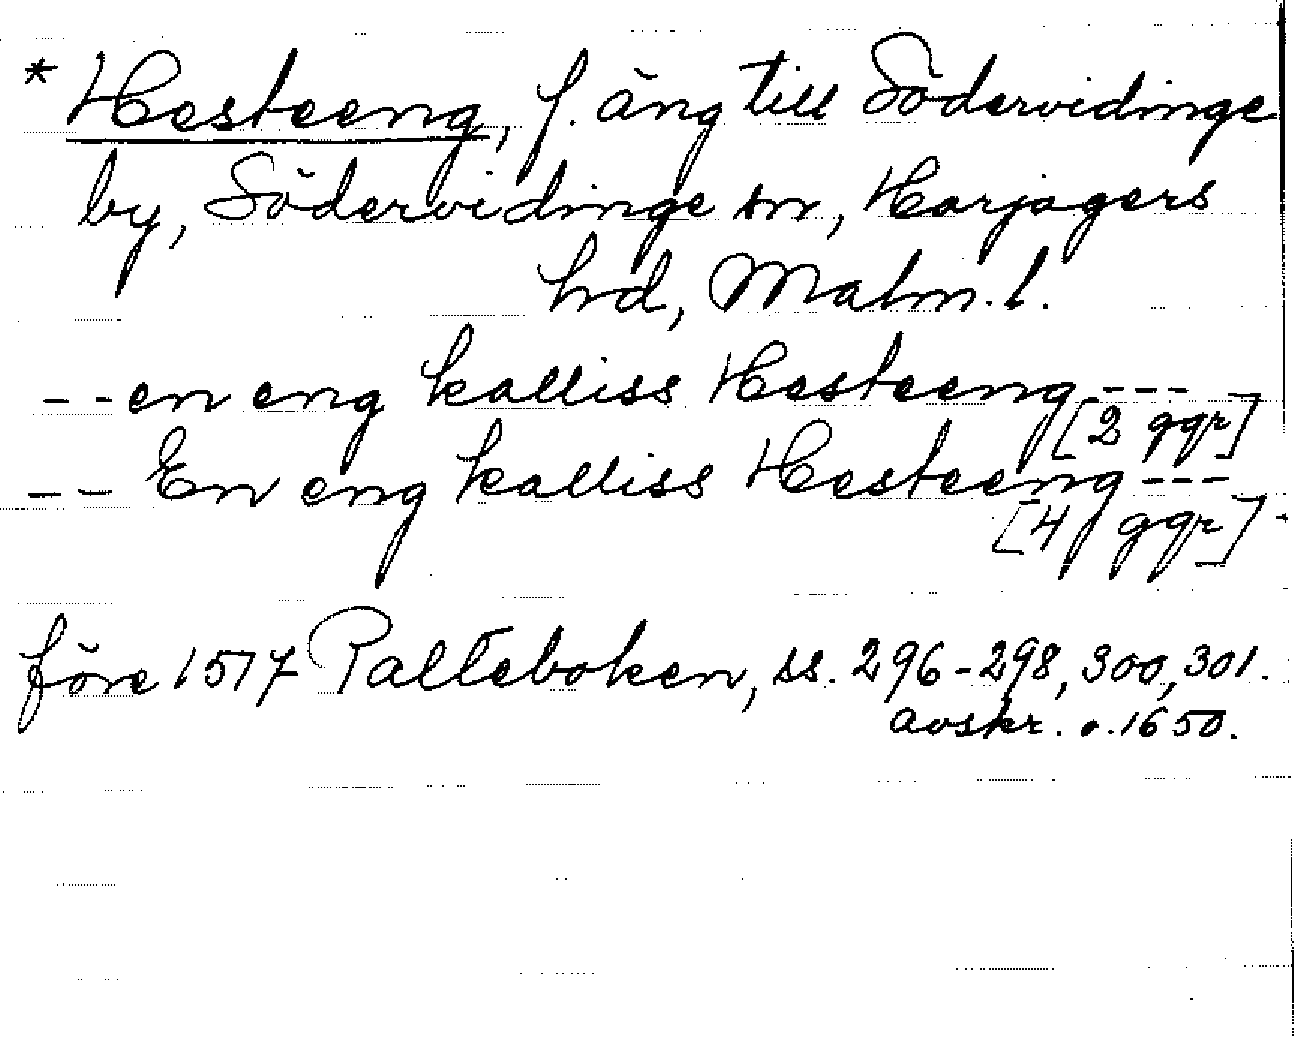 * Hesteeng, f. äng till Södervidinge
by, Södervidinge sn, Harjagers
hrd, Malm. l.
- - en eng kalliss Hesteeng - - -
[2 ggr]
- - En eng kalliss Hesteeng - - -
[4 ggr]
före 1517 Palteboken, ss. 296-298, 300, 301.
avskr. o. 1650.